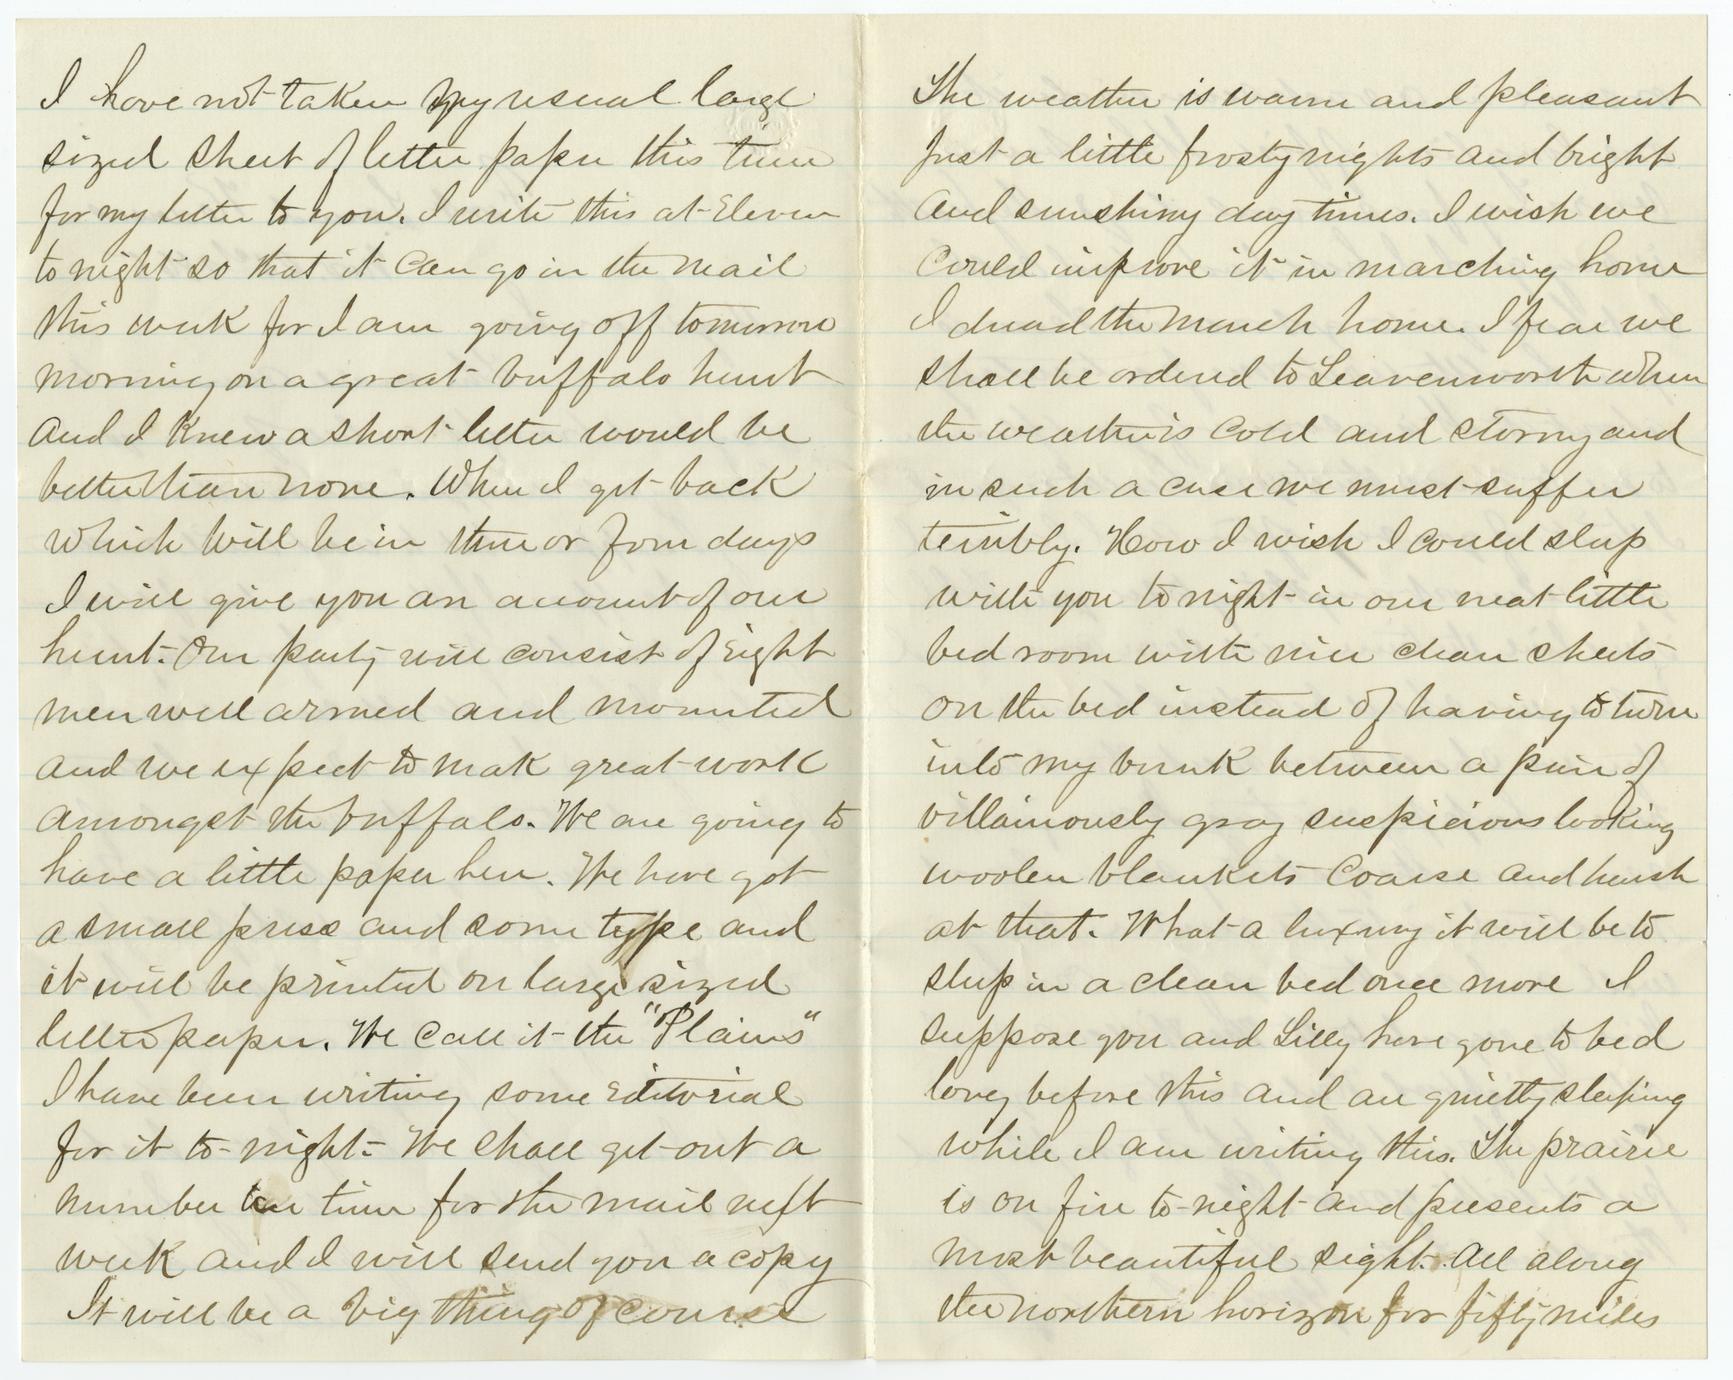 I have not taken my usual large
sized sheet of letter paper this time
for my letter to you. I write this at Eleven
to night so that it can go in the mail
this week for I am going off tomorrow
morning on a great buffalo hunt
and I knew a short letter would be
better than none. When I get back
which will be in three or four days
I will give you an account of our
hunt. Our party will consist of Eight
men well armed and mounted
and we expect to make great work
amongst the buffalo. We are going to
have a little paper here. We have got
a small press and some type and
it will be printed on large sized
letter paper. We call it the "Plains"
I have been writing some Editorial
for it to-night- We shall get out a
number in time for the mail next
week and I will send you a copy
It will be a big thing of course
The weather is warm and pleasant
Just a little frosty nights and bright
and sunshiny day times. I wish we
could improve it in marching home
I dread the march home. I fear we
shall be ordered to Leavenworth when
the weather is cold and stormy and
in such a case we must suffer
terribly. How I wish I could sleep
with you to night in our neat little
bed room with nice clean sheets
on the bed instead of having to turn
into my bunk between a pair of
villainously gray suspicious looking
woolen blankets coarse and harsh
at that. What a luxury it will be to
sleep in a clean bed once more I
suppose you and Lilly have gone to bed
long before this and are quietly sleeping
while I am writing this. The prairie
is on fire to-night and presents a
most beautiful sight. All along
the northern horizon for fifty miles